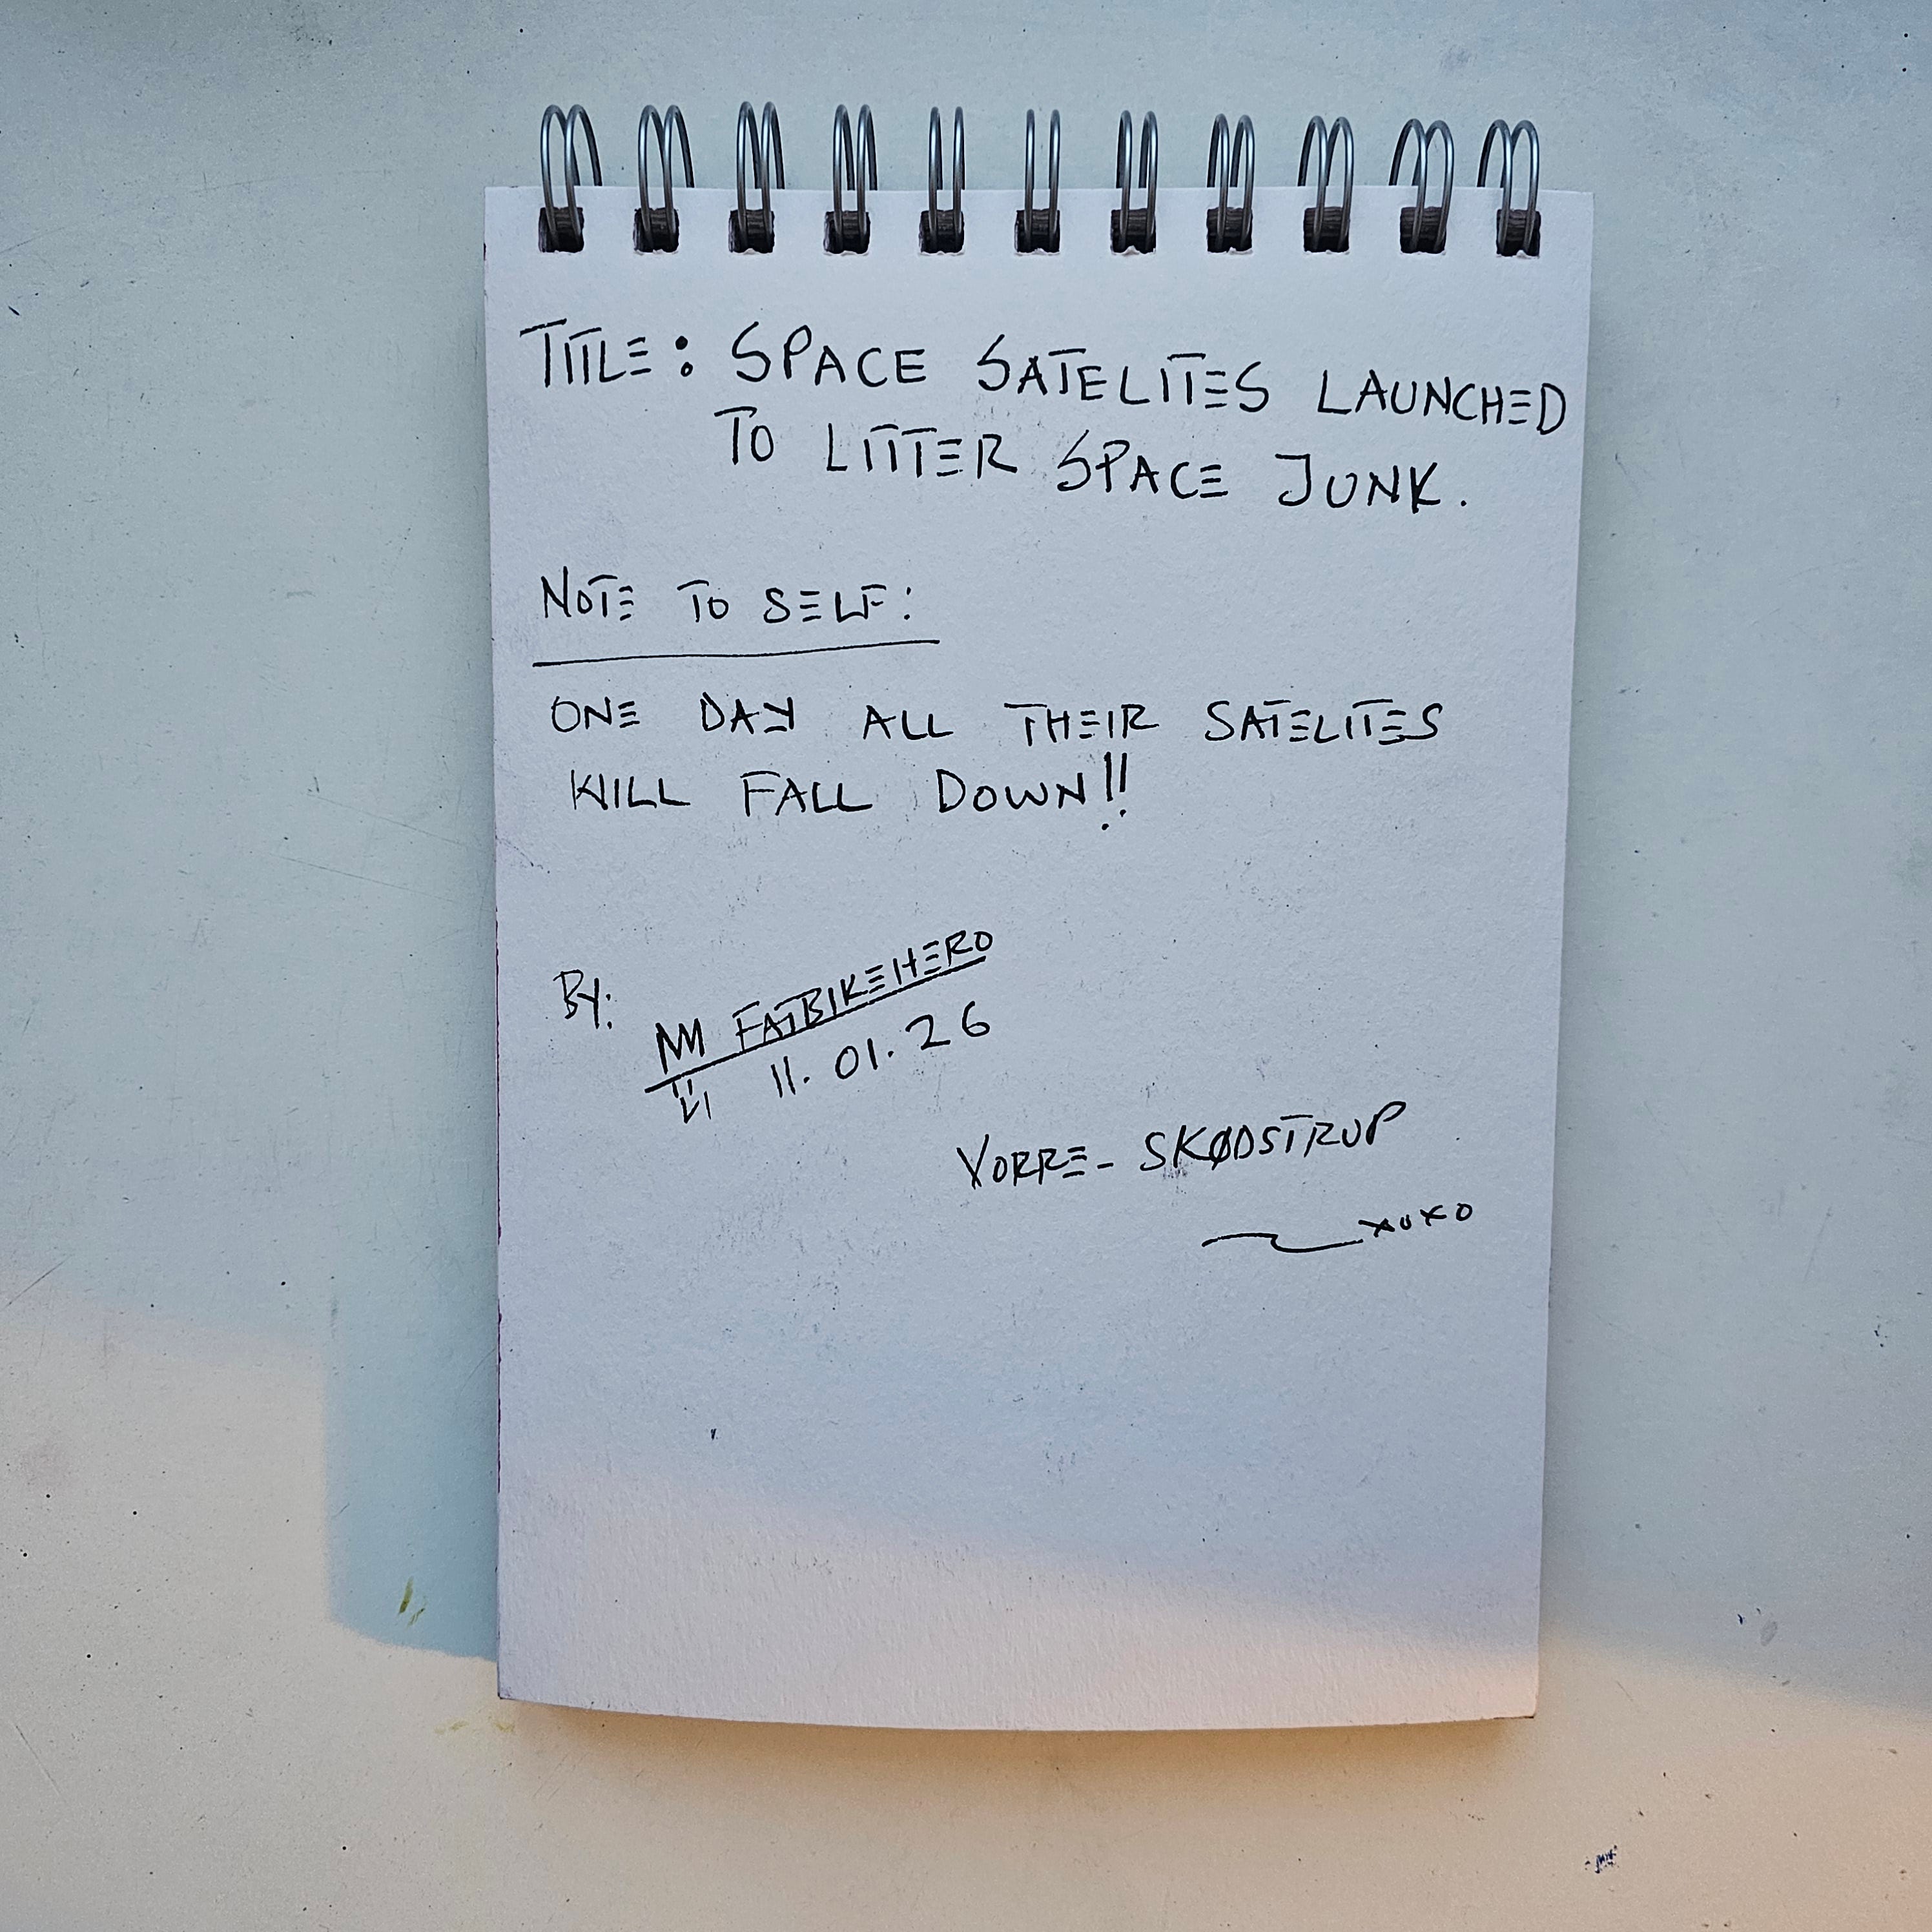 TITLE: SPACE SATELITES LAUNCHED
TO LITTER SPACE JUNK.
NOTE TO SELF:
ONE DAY ALL THEIR SATELITES
WILL FALL DOWN!!
BY:
FATBIKEHERO
11.01.26
VORRE- SKØDSTRUP
XOXO